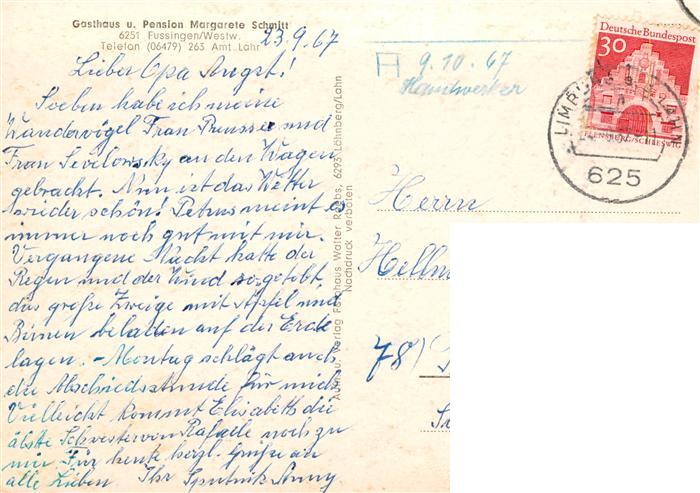 Gasthaus u. Pension Margarete Schmitt
6251 Fussingen/Westw.
Telefon (06479) 263 Amt Lahr
23.9.67
Lieber Opa Angst!
Soeben habe ich meine
Wandervögel Frau Preusse und
Frau an den Wagen
gebracht. Nun ist das Wetter
wieder schön! Petrus meint es
immer noch gut mit mir.
Vergangene Nacht hatte der
Regen und der Wind so getobt,
das große Zweige mit Äpfel und
Birnen beladen auf der Erde
lagen. - Montag schlägt auch
die Abschiedsstunde für mich
Vielleicht kommt Elisabeth die
älste Schwester von noch zu
mir. Für heute herzl. Grüße an
alle Lieben Ihr Sputnik Anny.
Aufn. u. Verlag Fotohaus Walter 6293 Löhnberg/Lahn
Nachdruck verboten
A 9.10.67
Handwerker
Deutsche Bundespost
30
FLENSBURG/SCHLESWIG
LIMBURG LAHN
625
Herrn
Hellm
78)